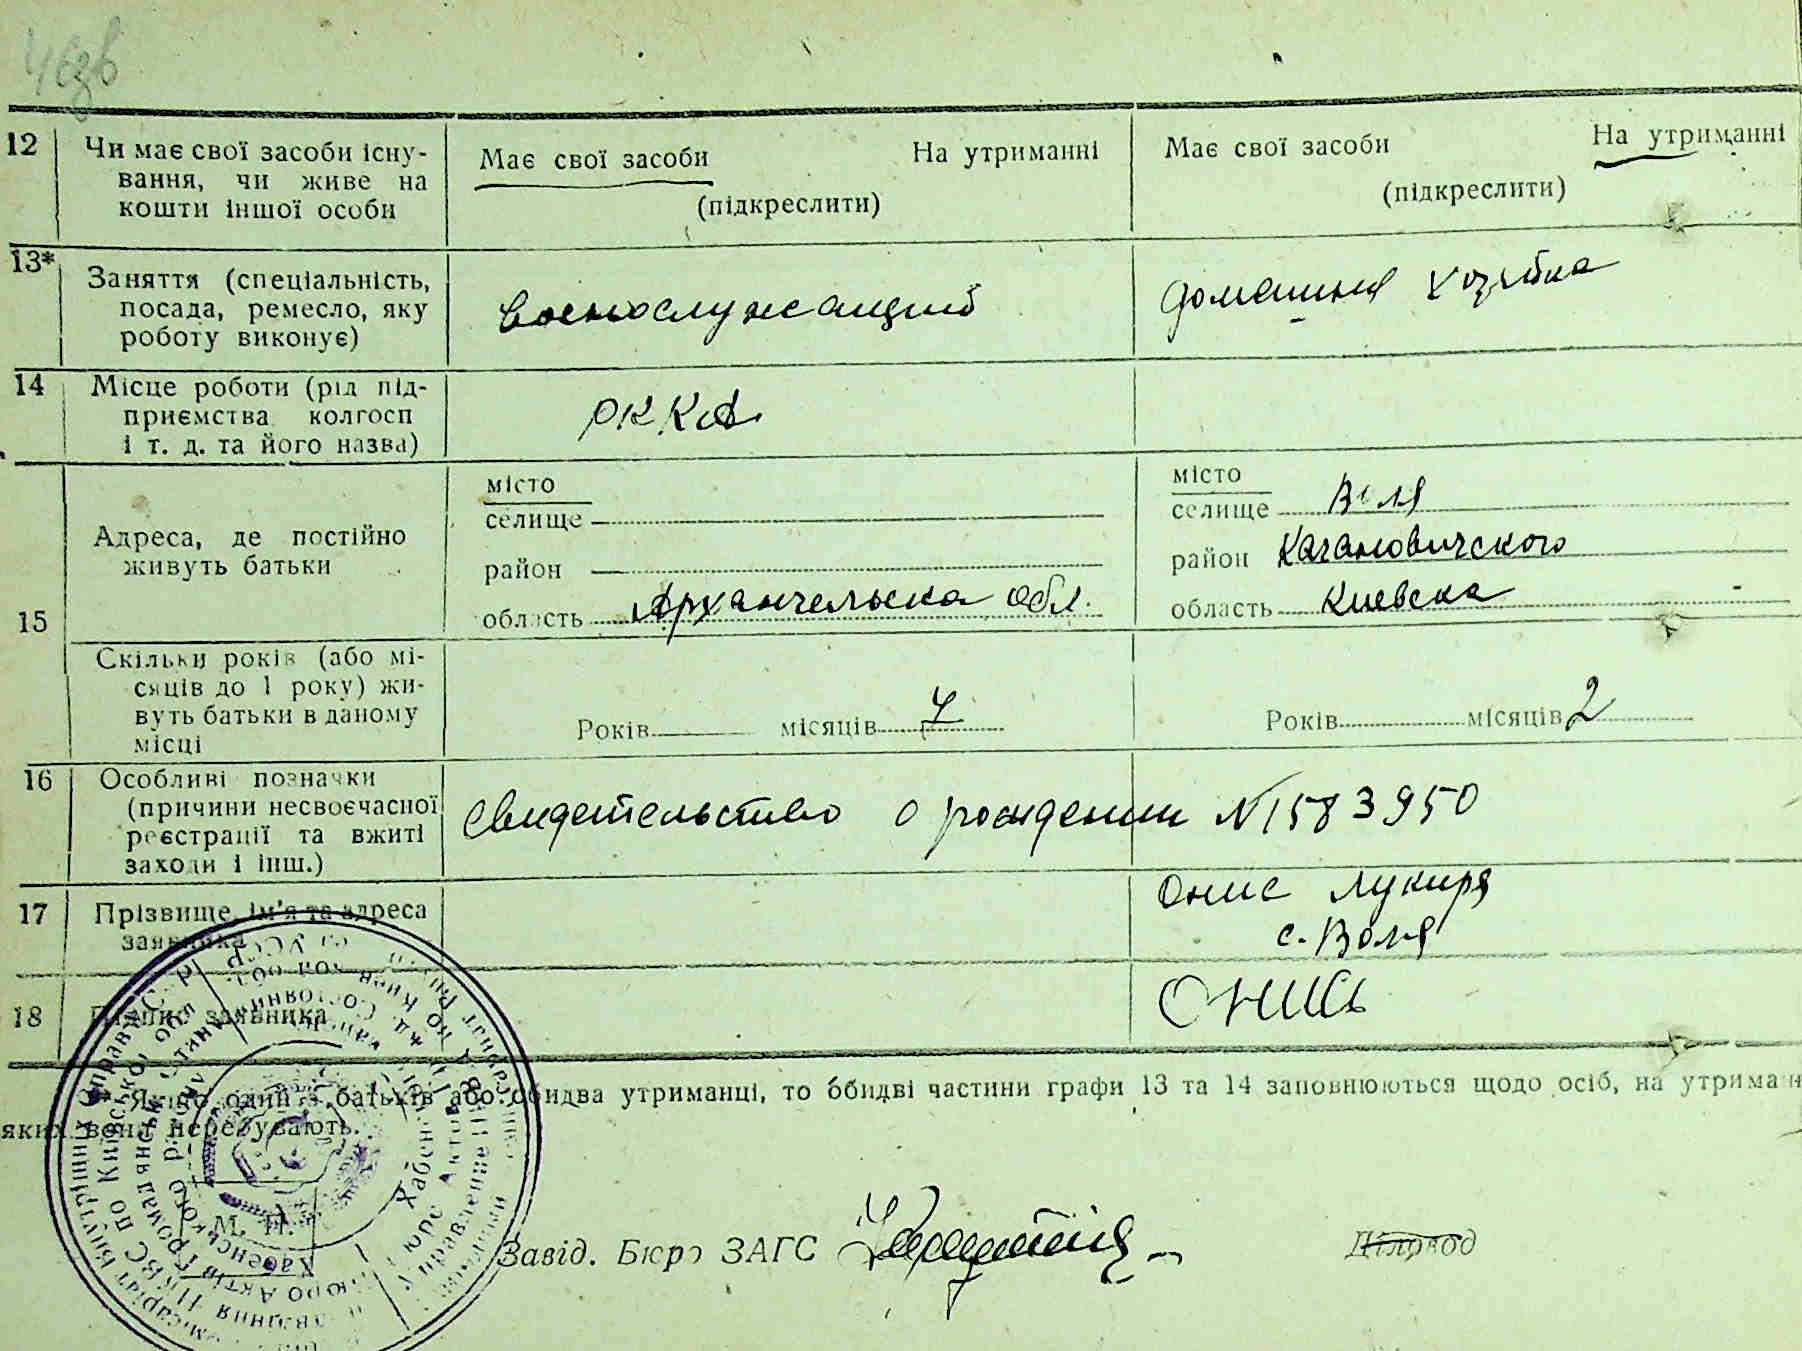 46зв
12 Чи має свої засоби існу-
вання, чи живе на
кошти іншої особи
Має свої засоби На утриманні
(підкреслити)
Має свої засоби На утриманні
(підкреслити)
13* Заняття (спеціальність,
посада, ремесло, яку
роботу виконує)
военослужащий
домашня хозяйка
14 Місце роботи (рід під-
приємства колгосп
і т. д. та його назва)
РККА
15
Адреса, де постійно
живуть батьки
місто
селище
район
область Архангельска обл.
місто
селище Воля
район Кагановичского
область Киевска
Скільки років (або мі-
сяців до 1 року) жи-
вуть батьки в даному
місці
Років місяців 7
Років місяців 2
16 Особливі позначки
(причини несвоєчасної
реєстрації та вжиті
заходи і інш.)
свидетельство о рождении № 583950
17 Прізвище, ім'я та адреса
заявника
Онис Лукиря
с. Воля
18 Підпис заявника
Онись
* Якщо один з батьків або обидва утриманці, то обидві частини графи 13 та 14 заповнюються щодо осіб, на утриман
яких вони перебувають.
М. П.
Завід. Бюро ЗАГС
Діловод